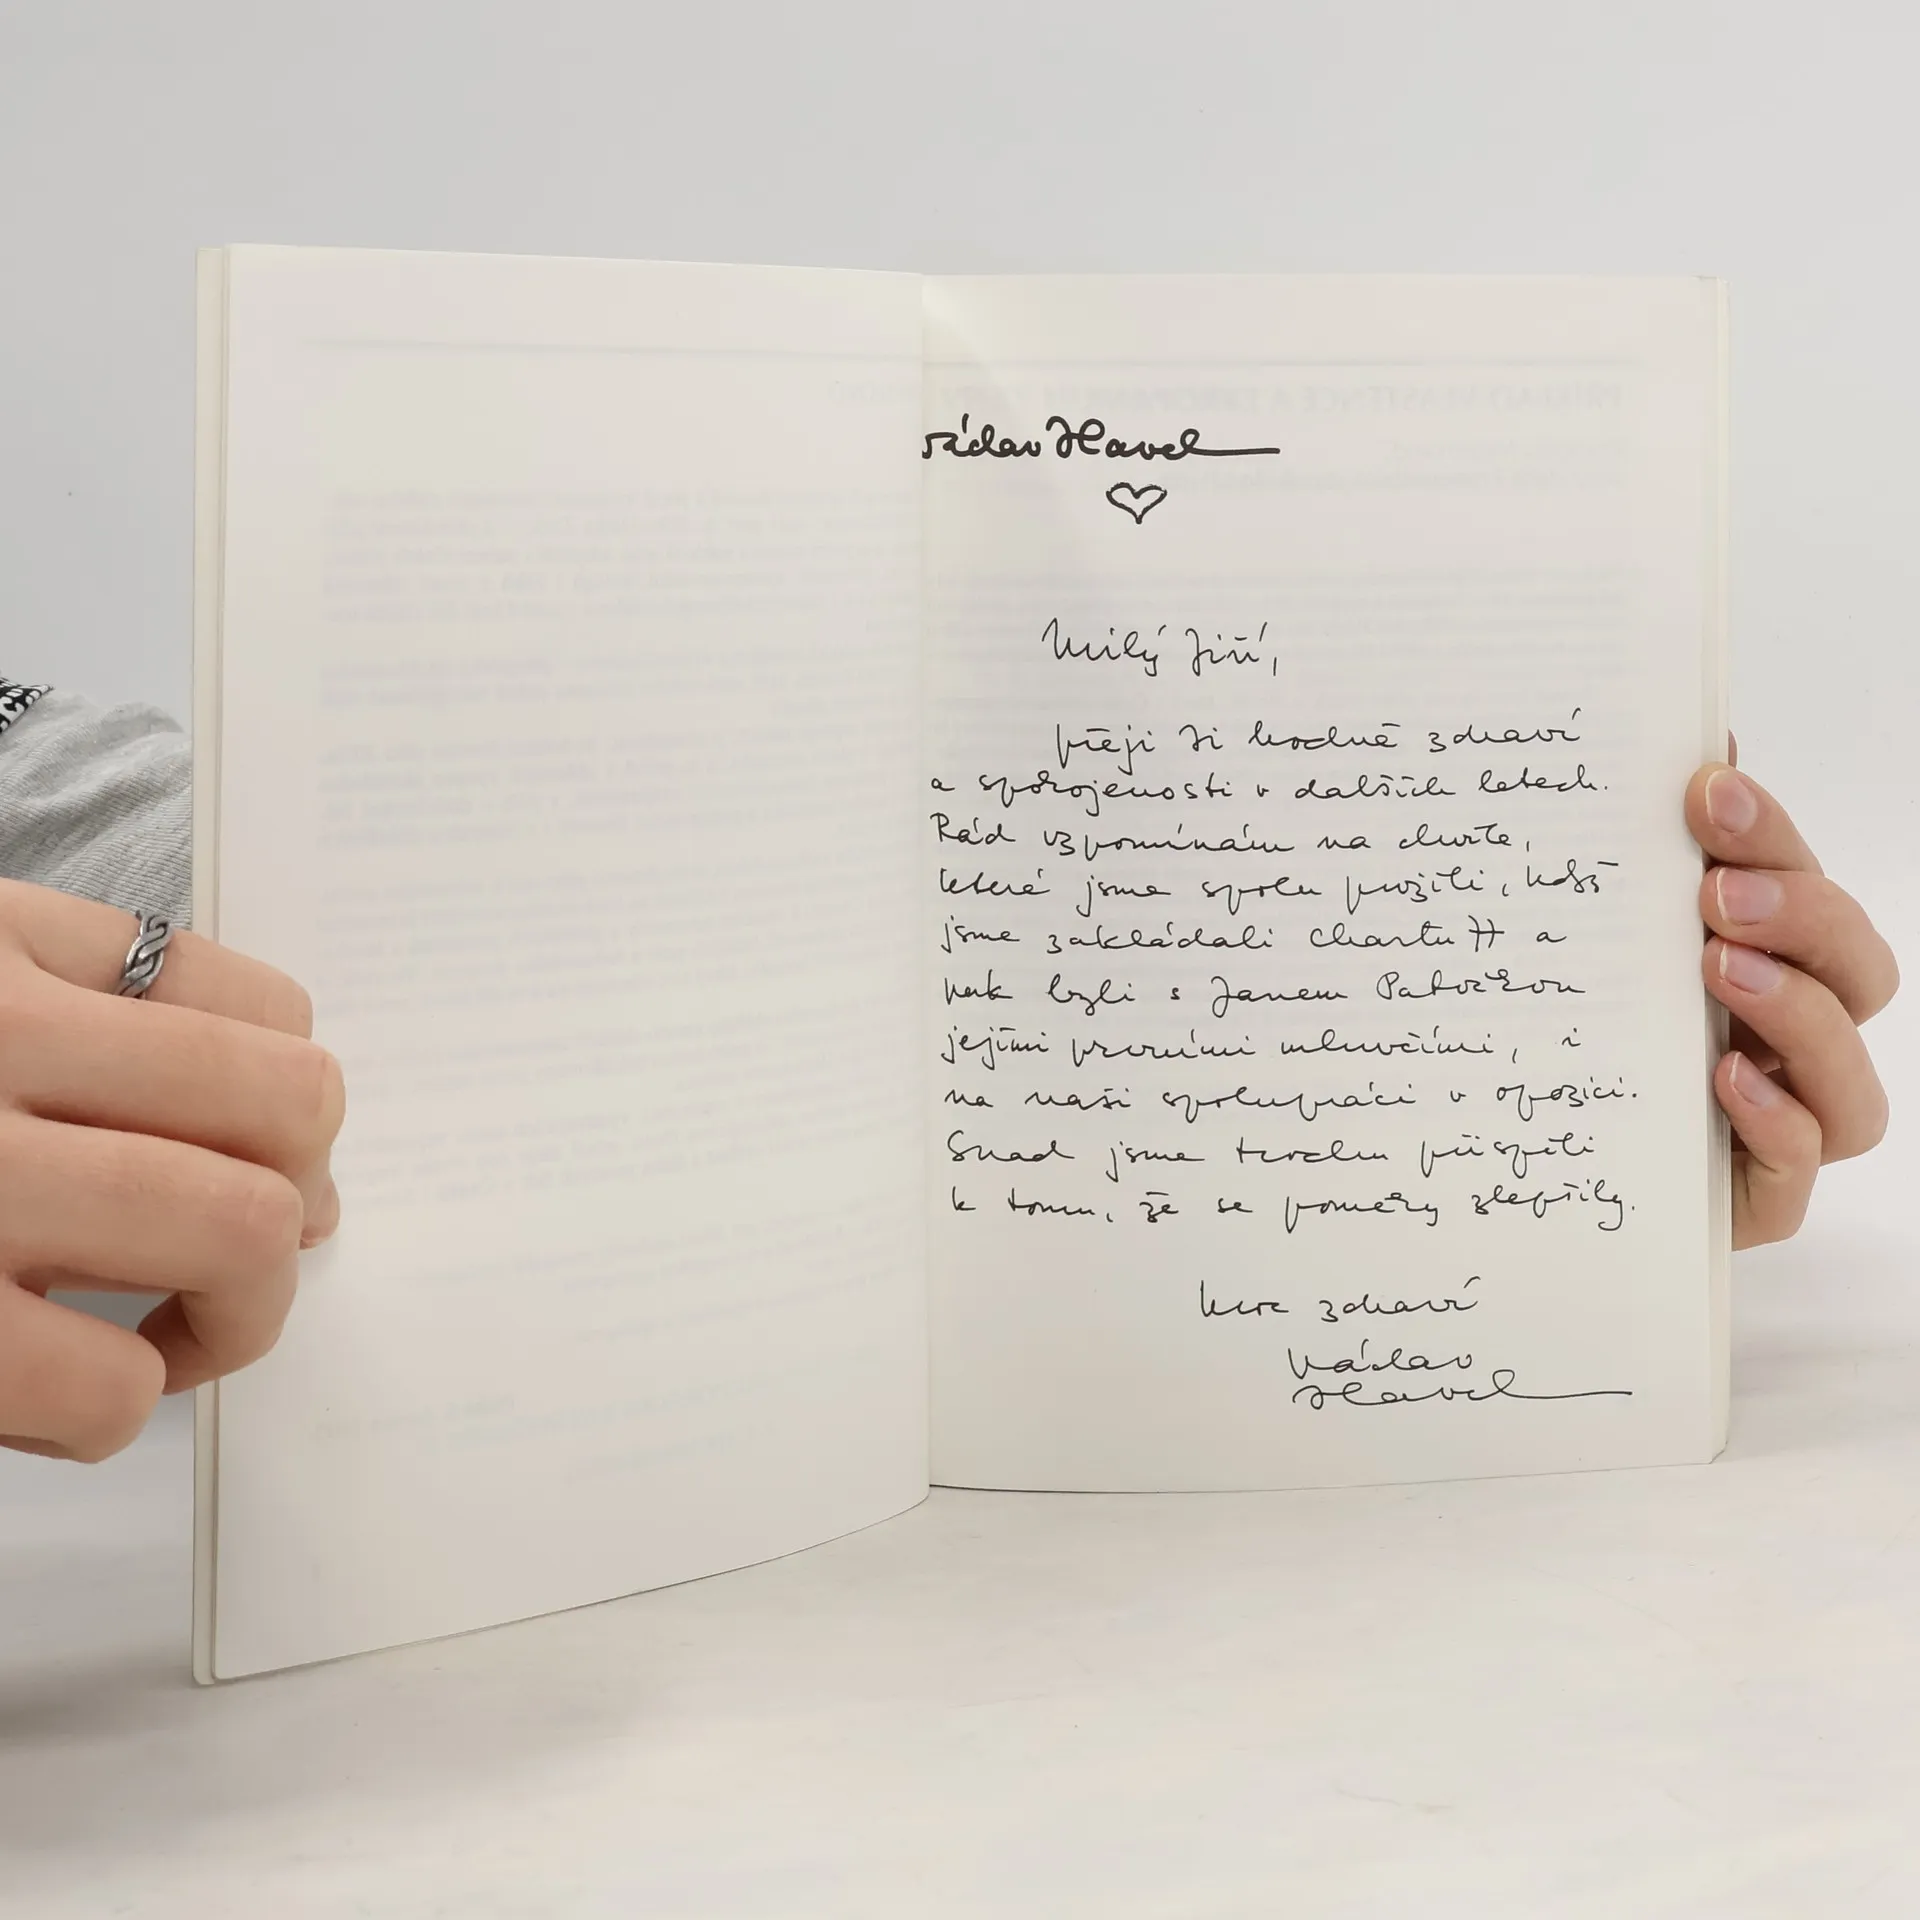 Václav Havel
Milý Jiří,
přeji Ti hodně zdraví
a spokojenosti v dalších letech.
Rád vzpomínám na chvíle,
které jsme spolu prožili, když
jsme zakládali Chartu 77 a
pak byli s Janem Patočkou
jejími prvními mluvčími, i
na naši spolupráci v opozici.
Snad jsme trochu přispěli
k tomu, že se poměry zlepšily.
Hore zdraví
Václav
Havel